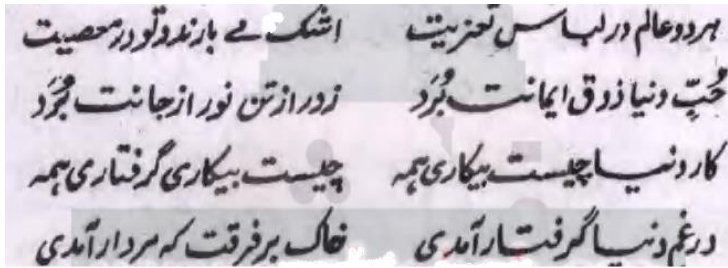 ہر دو عالم در لباس تعزیت اشک مے بارند و تو در معصیت
حُبِّ دنیا ذوق ایمانت بُرَد زور از تن نور از جانت بُرَد
کار دنیا چیست بیکاری ہمہ چیست بیکاری گرفتاری ہمہ
در غم دنیا گرفتار آمدی خاک بر فرقت کہ مردار آمدی